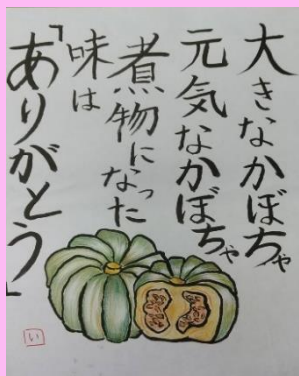 大きなかぼちゃ
元気なかぼちゃ
煮物になった
味は
「ありがとう」
い